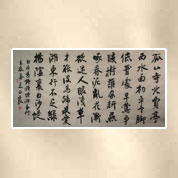 孤山寺北賈亭
西水面初平雲脚
低幾處早鶯爭
暖樹誰家新燕
啄春泥亂花漸
欲迷人眼淺草
才能沒馬蹄最愛
湖東行不足綠
楊陰裏白沙堤